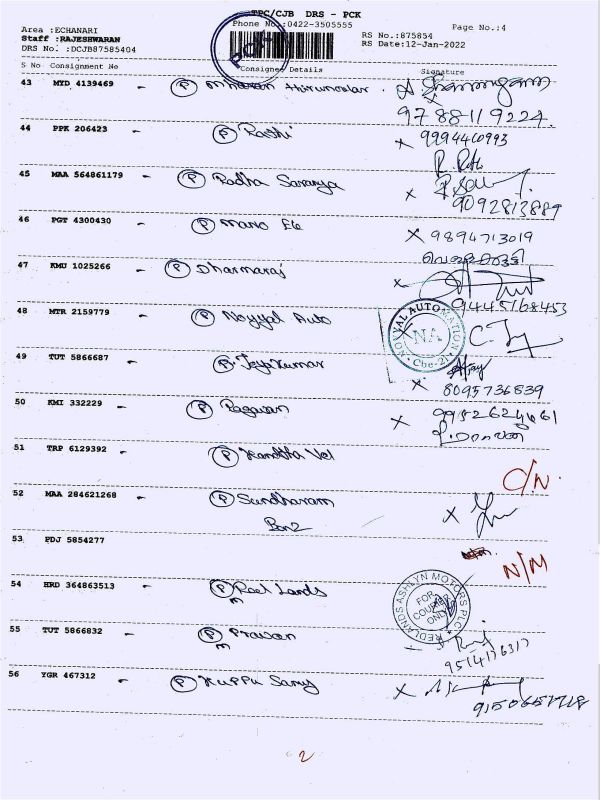 TPC/CJB DRS - PCK
Phone No:0422-3505555
Page No.:4
Area :ECHANARI
Staff :RAJESHWARAN
DRS No. :DCJB87585404
RS No.:875854
RS Date:12-Jan-2022
PCK
S No Consignment No Consignee Details Signature
43 MYD 4139469 - P
9788119224
44 PPK 206423 - P Rathi
9994460993
45 MAA 564861179 - P Radha Saranya
9092813889
46 PGT 4300430 - P Mano Ele
9894713019
47 KMU 1025266 - P Dharmaraj
9445168453
48 MTR 2159779 - P Noyyal Auto
NOYYAL AUTOMATION NA Cbe-21
49 TUT 5866687 - P Jayakumar
Ajay
8095736839
50 KMI 332229 - P
51 TRP 6129392 - P Kandha Vel
C/N.
52 MAA 284621268 - P Sundharam
53 PDJ 5854277
N/M
54 HRD 364863513 - P Reel Lands
m
REDLANDS ASHLYN MOTORS PLC
FOR COURIER ONLY
55 TUT 5866832 - P Praveen
m
9514176317
56 YGR 467312 - P Kuppu Samy
9150657718
2